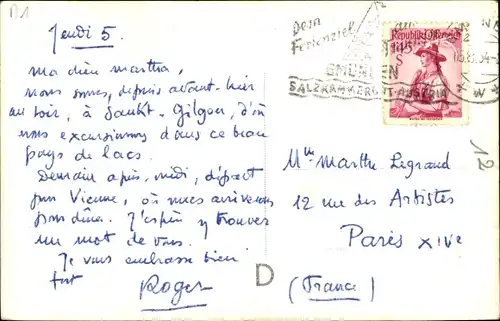 D1
Jeudi 5.
Ma chère Martha,
Nous sommes, depuis avant-hier
au soir, à Sankt-Gilgen, d'où
nous excursionnons dans ce beau
pays de lacs.
Demain après-midi, départ
pour Vienne, où nous arriverons
pour dîner. J'espère y trouver
un mot de vous.
Je vous embrasse bien
fort
Roger
D
Dein
Ferienziel
GMUNDEN
SALZKAMMERGUT-AUSTRIA
Republik Österreich
1.45
S
12
Mlle Marthe Legrand
12 rue des Artistes
Paris XIVe
(France)